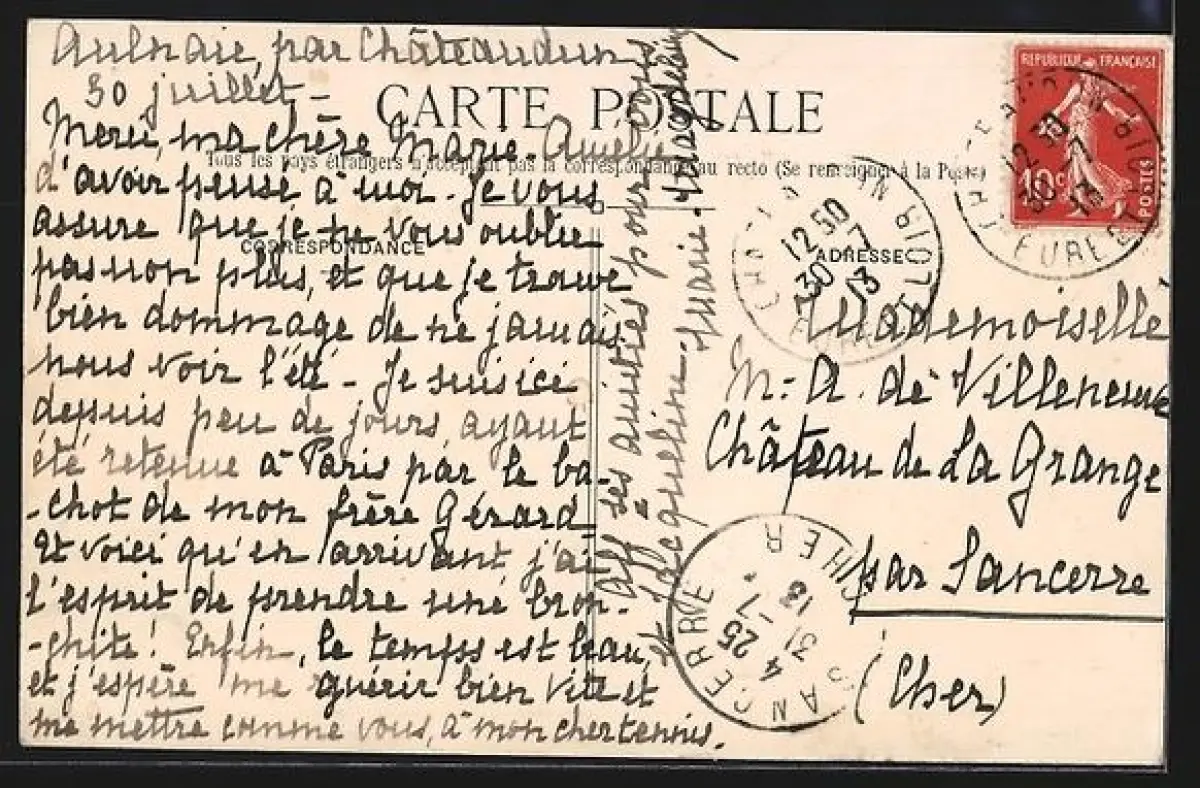 Aulnaie, par Châteaudun
30 juillet -
CARTE POSTALE
Tous les pays étrangers n'acceptent pas la correspondance au recto (Se renseigner à la Poste)
CORRESPONDANCE
Merci, ma chère Marie-Amélie
d'avoir pensé à moi - Je vous
assure que je ne vous oublie
pas non plus, et que je trouve
bien dommage de ne jamais
nous voir l'été - Je suis ici
depuis peu de jours, ayant
été retenue à Paris par le ba-
-chot de mon frère Gérard
Et voici qu'en arrivant j'ai
l'esprit de prendre une bron-
-chite! Enfin, le temps est beau,
et j'espère me guérir bien vite et
me mettre comme vous, à mon cher tennis.
Aff ses amitiés pour
et Jacqueline. Marie-Magdeleine
ADRESSE
Mademoiselle
M-A. de Villeneuve
Château de La Grange
par Sancerre
(Cher)
REPUBLIQUE FRANÇAISE
10c
POSTES
12 30
30 7
13
EURE
12 50
30 7
13
SANCERRE
CHER
4 25
31 -7
13